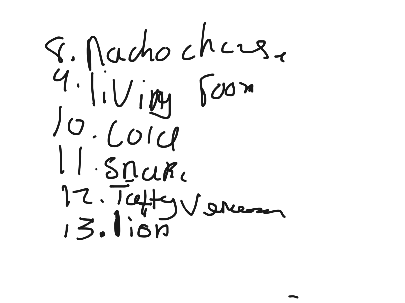 8. nacho chees
9. living room
10. cold
11. snake
12. Taffy
13. lion